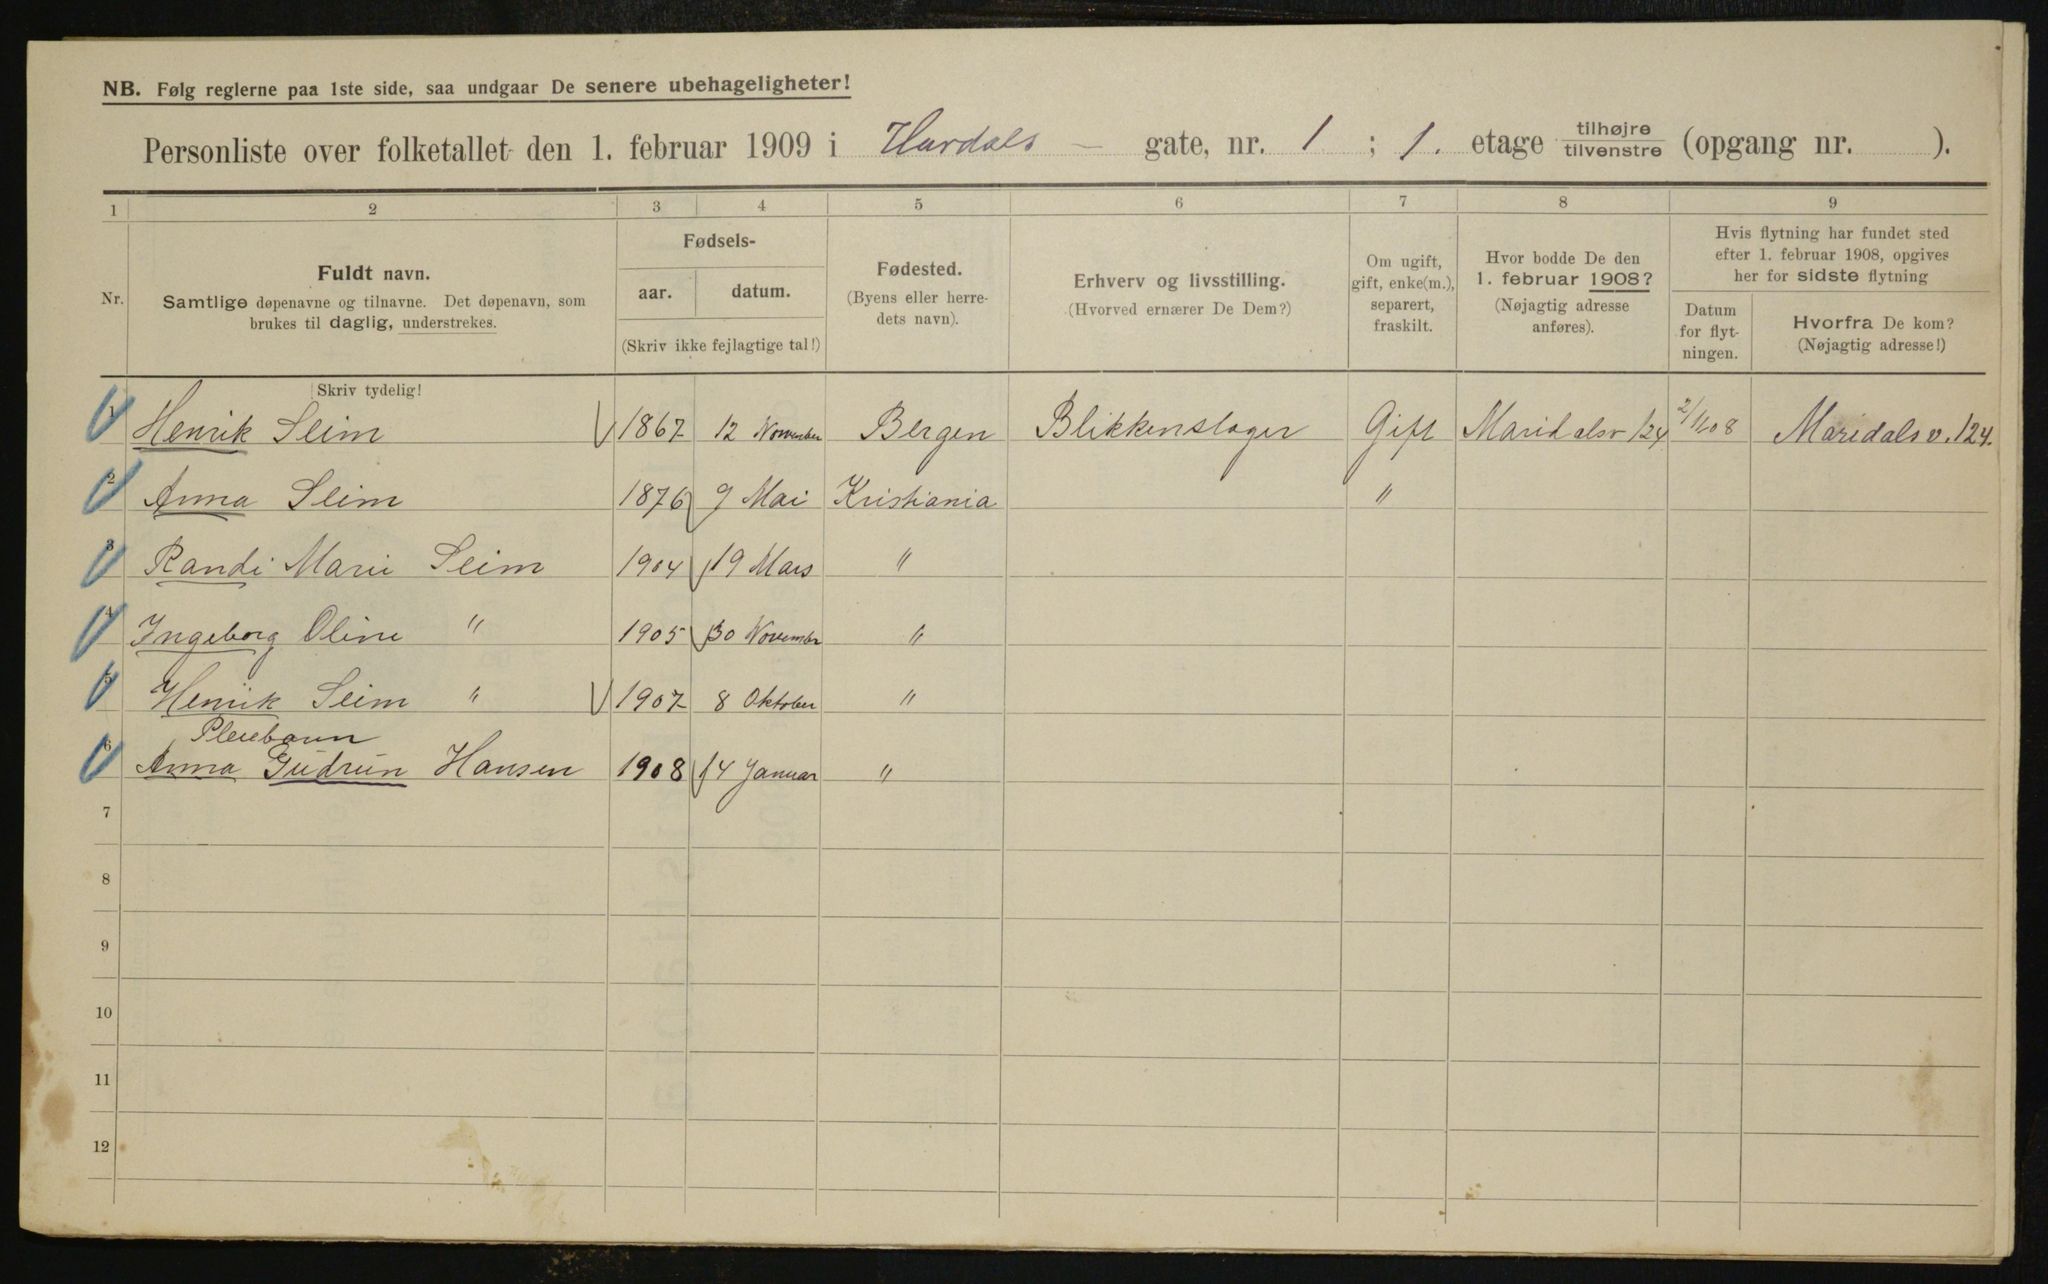 NB. Følg reglerne paa 1ste side, saa undgaar De senere ubehageligheter!
Personliste over folketallet den 1. februar 1909 i Hurdals — gate, nr. 1 ; 1. etage tilhøjre tilvenstre (opgang nr. ).
1 2 3 4 5 6 7 8 9
Nr.
Fuldt navn.
Samtlige døpenavne og tilnavne. Det døpenavn, som
brukes til daglig, understrekes.
Fødsels-
aar. datum.
(Skriv ikke fejlagtige tal!)
Fødested.
(Byens eller herre-
dets navn).
Erhverv og livsstilling.
(Hvorved ernærer De Dem?)
Om ugift,
gift, enke(m.),
separert,
fraskilt.
Hvor bodde De den
1. februar 1908?
(Nøjagtig adresse
anføres).
Hvis flytning har fundet sted
efter 1. februar 1908, opgives
her for sidste flytning
Datum
for flyt-
ningen.
Hvorfra De kom?
(Nøjagtig adresse!)
Skriv tydelig!
1 Henrik Seim 1867 12 November Bergen Blikkenslager Gift Maridalsv 124 2/1108 Maridalsv. 124.
2 Anna Seim 1876 9 Mai Kristiania "
3 Randi Marie Seim 1904 19 Mars "
4 Ingeborg Oline " 1905 30 November "
5 Henrik Seim " 1907 8 Oktober "
Pleiebarn
6 Anna Gudrun Hansen 1908 14 Januar "
7
8
9
10
11
12